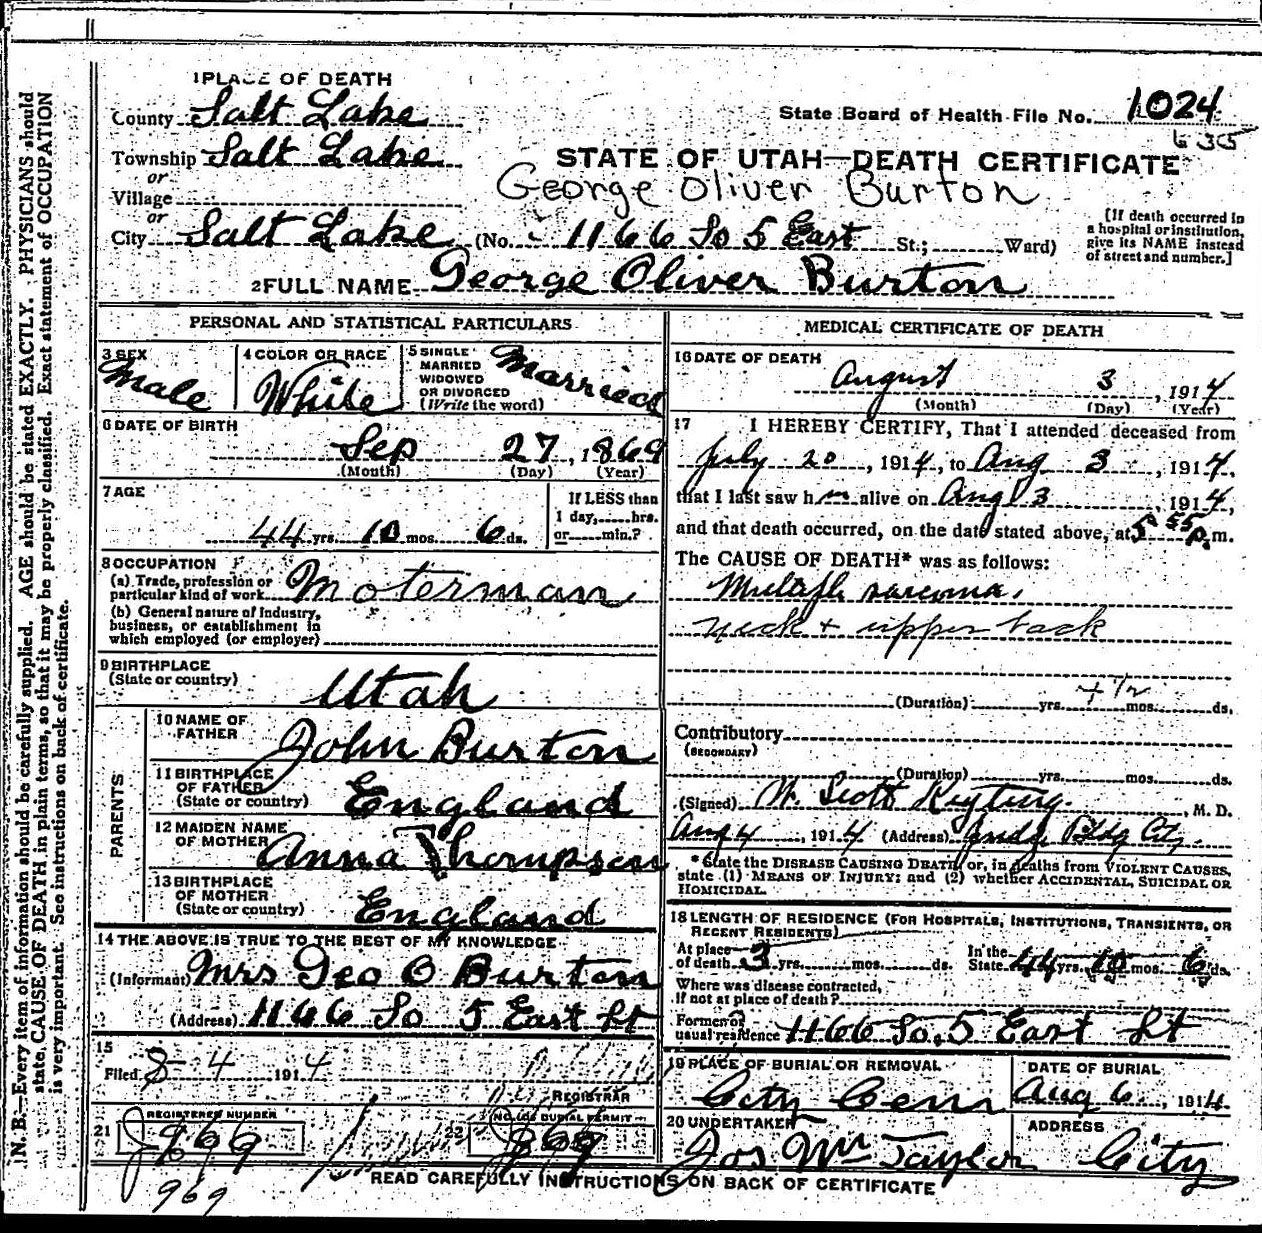 1 PLACE OF DEATH
County Salt Lake
State Board of Health File No. 1024
635
Township Salt Lake
STATE OF UTAH—DEATH CERTIFICATE
or
George Oliver Burton
Village
or
City Salt Lake (No. 1166 So 5 East St.; Ward)
[If death occurred in a hospital or institution, give its NAME instead of street and number.]
2 FULL NAME George Oliver Burton
PERSONAL AND STATISTICAL PARTICULARS
3 SEX
Male
4 COLOR OR RACE
White
5 SINGLE
MARRIED
WIDOWED
OR DIVORCED
(Write the word)
Married
6 DATE OF BIRTH
Sep 27, 1869
(Month) (Day) (Year)
7 AGE
44 yrs. 10 mos. 6 ds.
If LESS than
1 day, hrs.
or min.?
8 OCCUPATION
(a) Trade, profession or
particular kind of work Moterman
(b) General nature of Industry,
business, or establishment in
which employed (or employer)
9 BIRTHPLACE
(State or country)
Utah
PARENTS
10 NAME OF
FATHER
John Burton
11 BIRTHPLACE
OF FATHER
(State or country)
England
12 MAIDEN NAME
OF MOTHER
Anna Thompson
13 BIRTHPLACE
OF MOTHER
(State or country)
England
14 THE ABOVE IS TRUE TO THE BEST OF MY KNOWLEDGE
(Informant) Mrs Geo O Burton
(Address) 1166 So 5 East St
15
Filed 8-4 1914
REGISTRAR
21 REGISTERED NUMBER
J969
22 NO. OF BURIAL PERMIT
J969
969
MEDICAL CERTIFICATE OF DEATH
16 DATE OF DEATH
August 3, 1914
(Month) (Day) (Year)
17 I HEREBY CERTIFY, That I attended deceased from
July 20, 1914, to Aug 3, 1914,
that I last saw him alive on Aug 3 1914,
and that death occurred, on the date stated above, at 5 55 p.m.
The CAUSE OF DEATH* was as follows:
sarcoma,
neck + upper back
(Duration) yrs. mos. ds.
Contributory
(SECONDARY)
(Duration) yrs. mos. ds.
(Signed) W. Scott M. D.
Aug 4, 1914 (Address) Bldg City
*State the DISEASE CAUSING DEATH, or, in deaths from VIOLENT CAUSES,
state (1) MEANS OF INJURY; and (2) whether ACCIDENTAL, SUICIDAL OR
HOMICIDAL.
18 LENGTH OF RESIDENCE (FOR HOSPITALS, INSTITUTIONS, TRANSIENTS, OR
RECENT RESIDENTS)
At place
of death 3 yrs. mos. ds.
In the
State 44 yrs. 10 mos. 6 ds.
Where was disease contracted,
if not at place of death?
Former or
usual residence 1166 So. 5 East St
19 PLACE OF BURIAL OR REMOVAL
City Cem
DATE OF BURIAL
Aug 6, 1914
20 UNDERTAKER
Jos Wm Taylor
ADDRESS
City
READ CAREFULLY INSTRUCTIONS ON BACK OF CERTIFICATE
N. B.—Every item of information should be carefully supplied. AGE should be stated EXACTLY. PHYSICIANS should
state CAUSE OF DEATH in plain terms, so that it may be properly classified. Exact statement of OCCUPATION
is very important. See instructions on back of certificate.